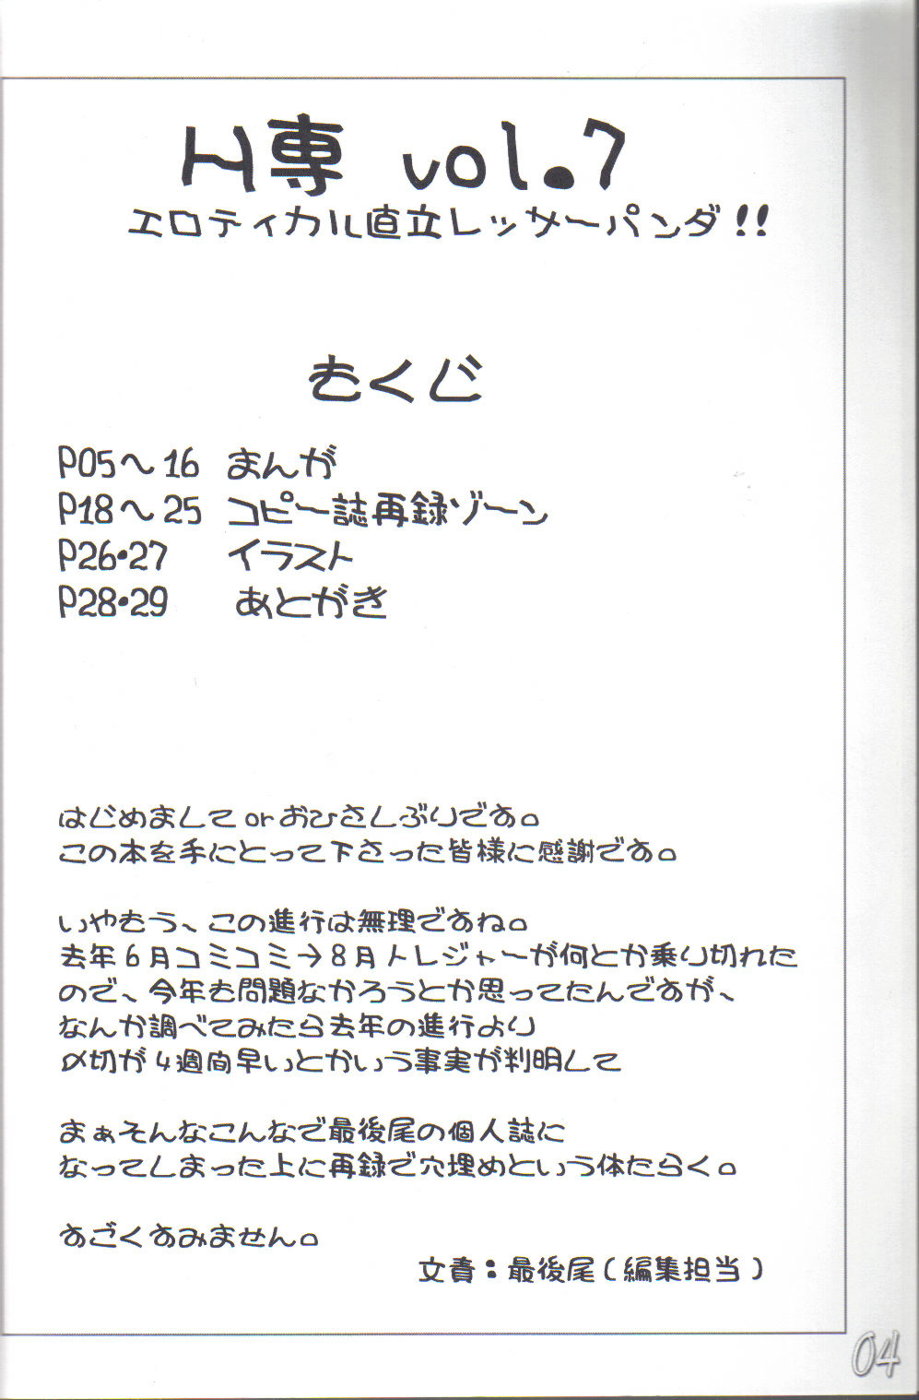 H専 vol.7
エロティカル直立レッサーパンダ!!
もくじ
P05〜16 まんが
P18〜25 コピー誌再録ゾーン
P26・27 イラスト
P28・29 あとがき
はじめまして or おひさしぶりです。
この本を手にとって下さった皆様に感謝です。
いやもう、この進行は無理ですね。
去年6月コミコミ→8月トレジャーが何とか乗り切れた
ので、今年も問題なかろうとか思ってたんですが、
なんか調べてみたら去年の進行より
〆切が4週間早いとかいう事実が判明して
まぁそんなこんなで最後尾の個人誌に
なってしまった上に再録で穴埋めという体たらく。
すごくすみません。
文責：最後尾(編集担当)
04